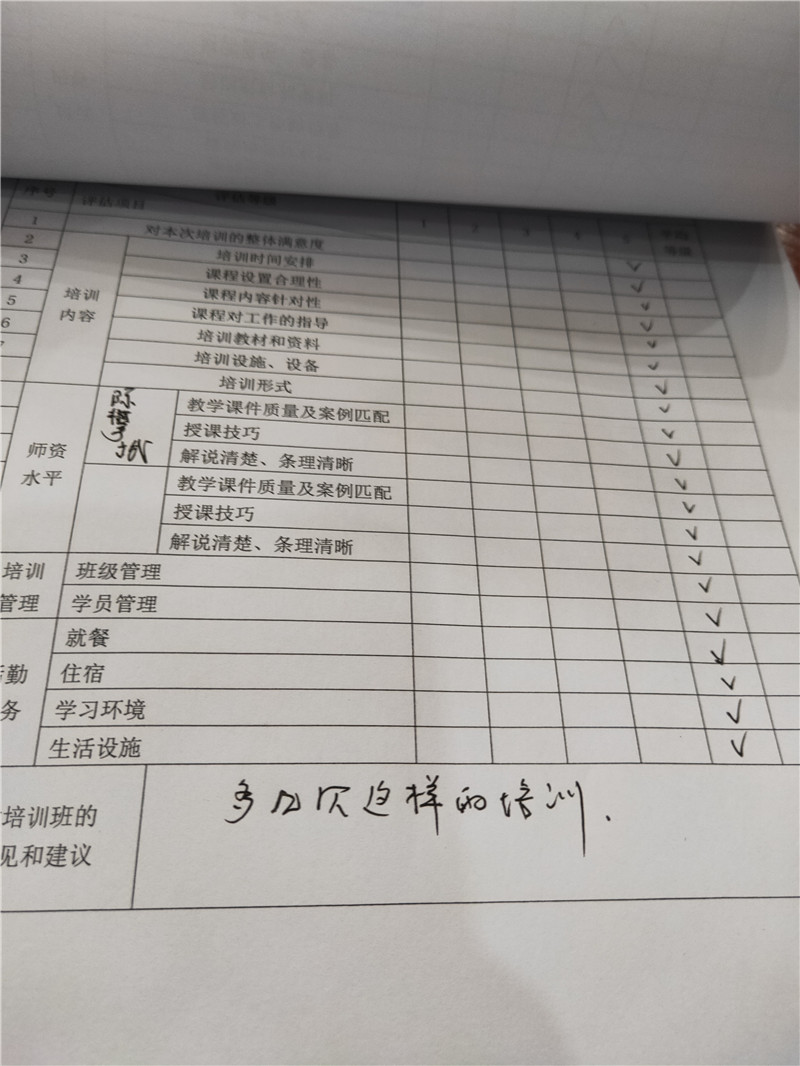 序号 评估项目 评估等级
1 2 3 4 5 平均等级
1 对本次培训的整体满意度 √
2 培训时间安排 √
3 课程设置合理性 √
4 培训内容 课程内容针对性 √
5 课程对工作的指导 √
6 培训教材和资料 √
培训设施、设备 √
培训形式 √
教学课件质量及案例匹配 √
授课技巧 √
师资水平 解说清楚、条理清晰 √
教学课件质量及案例匹配 √
授课技巧 √
解说清楚、条理清晰 √
培训管理 班级管理 √
学员管理 √
就餐 √
勤务 住宿 √
学习环境 √
生活设施 √
培训班的
见和建议
多几次这样的培训.